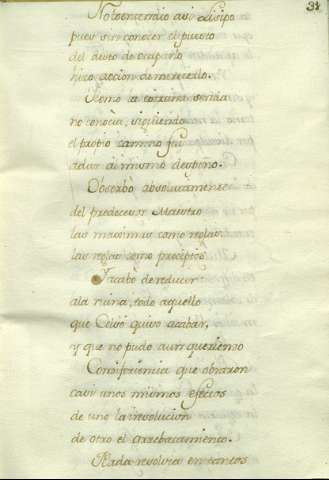 31
No lo entendio asi Clisipo
pues sin conocer el puesto
del dicto de ocuparlo
hizo accion de merecello.
Como la torxente senda
no conocia, siguiendo
el camino fue
a dar al mismo despeno.
Observó absolutamente
del predecesor Maestro
las maximas como reglas
las reglas como preceptos
Y acabó de reducir
a la ruina, todo aquello
que Celso quiso acabar,
y que no pudo aun queriendo
Con diferencia que obraron
casi unos mismos efectos
de uno la irresolucion
de otro el arrebatamiento.
Nada resolvia en tantos